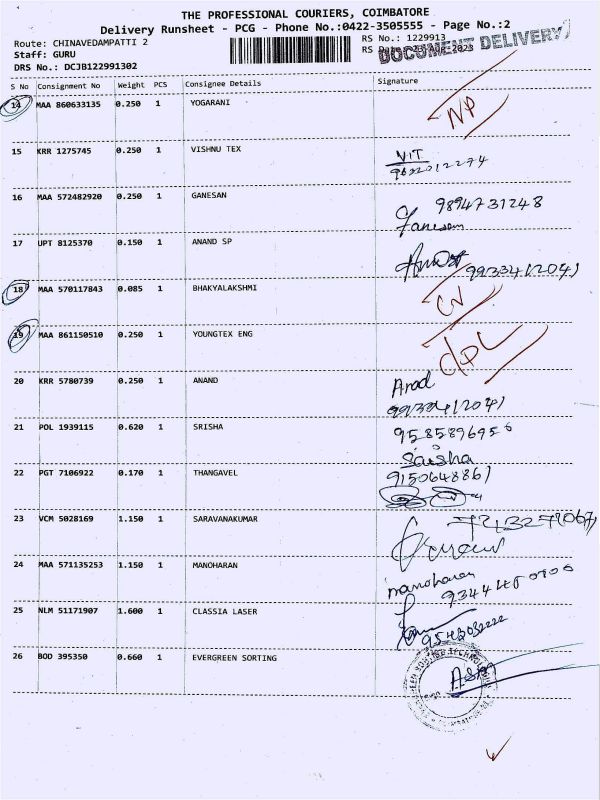 THE PROFESSIONAL COURIERS, COIMBATORE
Delivery Runsheet - PCG - Phone No.:0422-3505555 - Page No.:2
Route: CHINAVEDAMPATTI 2
RS No.: 1229913
Staff: GURU
RS Date: 23-Aug-2023
DOCUMENT DELIVERY
DRS No.: DCJB122991302
S No Consignment No Weight PCS Consignee Details Signature
14 MAA 860633135 0.250 1 YOGARANI NP
15 KRR 1275745 0.250 1 VISHNU TEX VIT
16 MAA 572482920 0.250 1 GANESAN 9894731248
Ganesan
17 UPT 8125370 0.150 1 ANAND SP
18 MAA 570117843 0.085 1 BHAKYALAKSHMI
19 MAA 861150510 0.250 1 YOUNGTEX ENG
20 KRR 5780739 0.250 1 ANAND
21 POL 1939115 0.620 1 SRISHA 9585896956
22 PGT 7106922 0.170 1 THANGAVEL 9150648861
23 VCM 5028169 1.150 1 SARAVANAKUMAR
24 MAA 571135253 1.150 1 MANOHARAN manoharan
25 NLM 51171907 1.600 1 CLASSIA LASER
26 BOD 395350 0.660 1 EVERGREEN SORTING